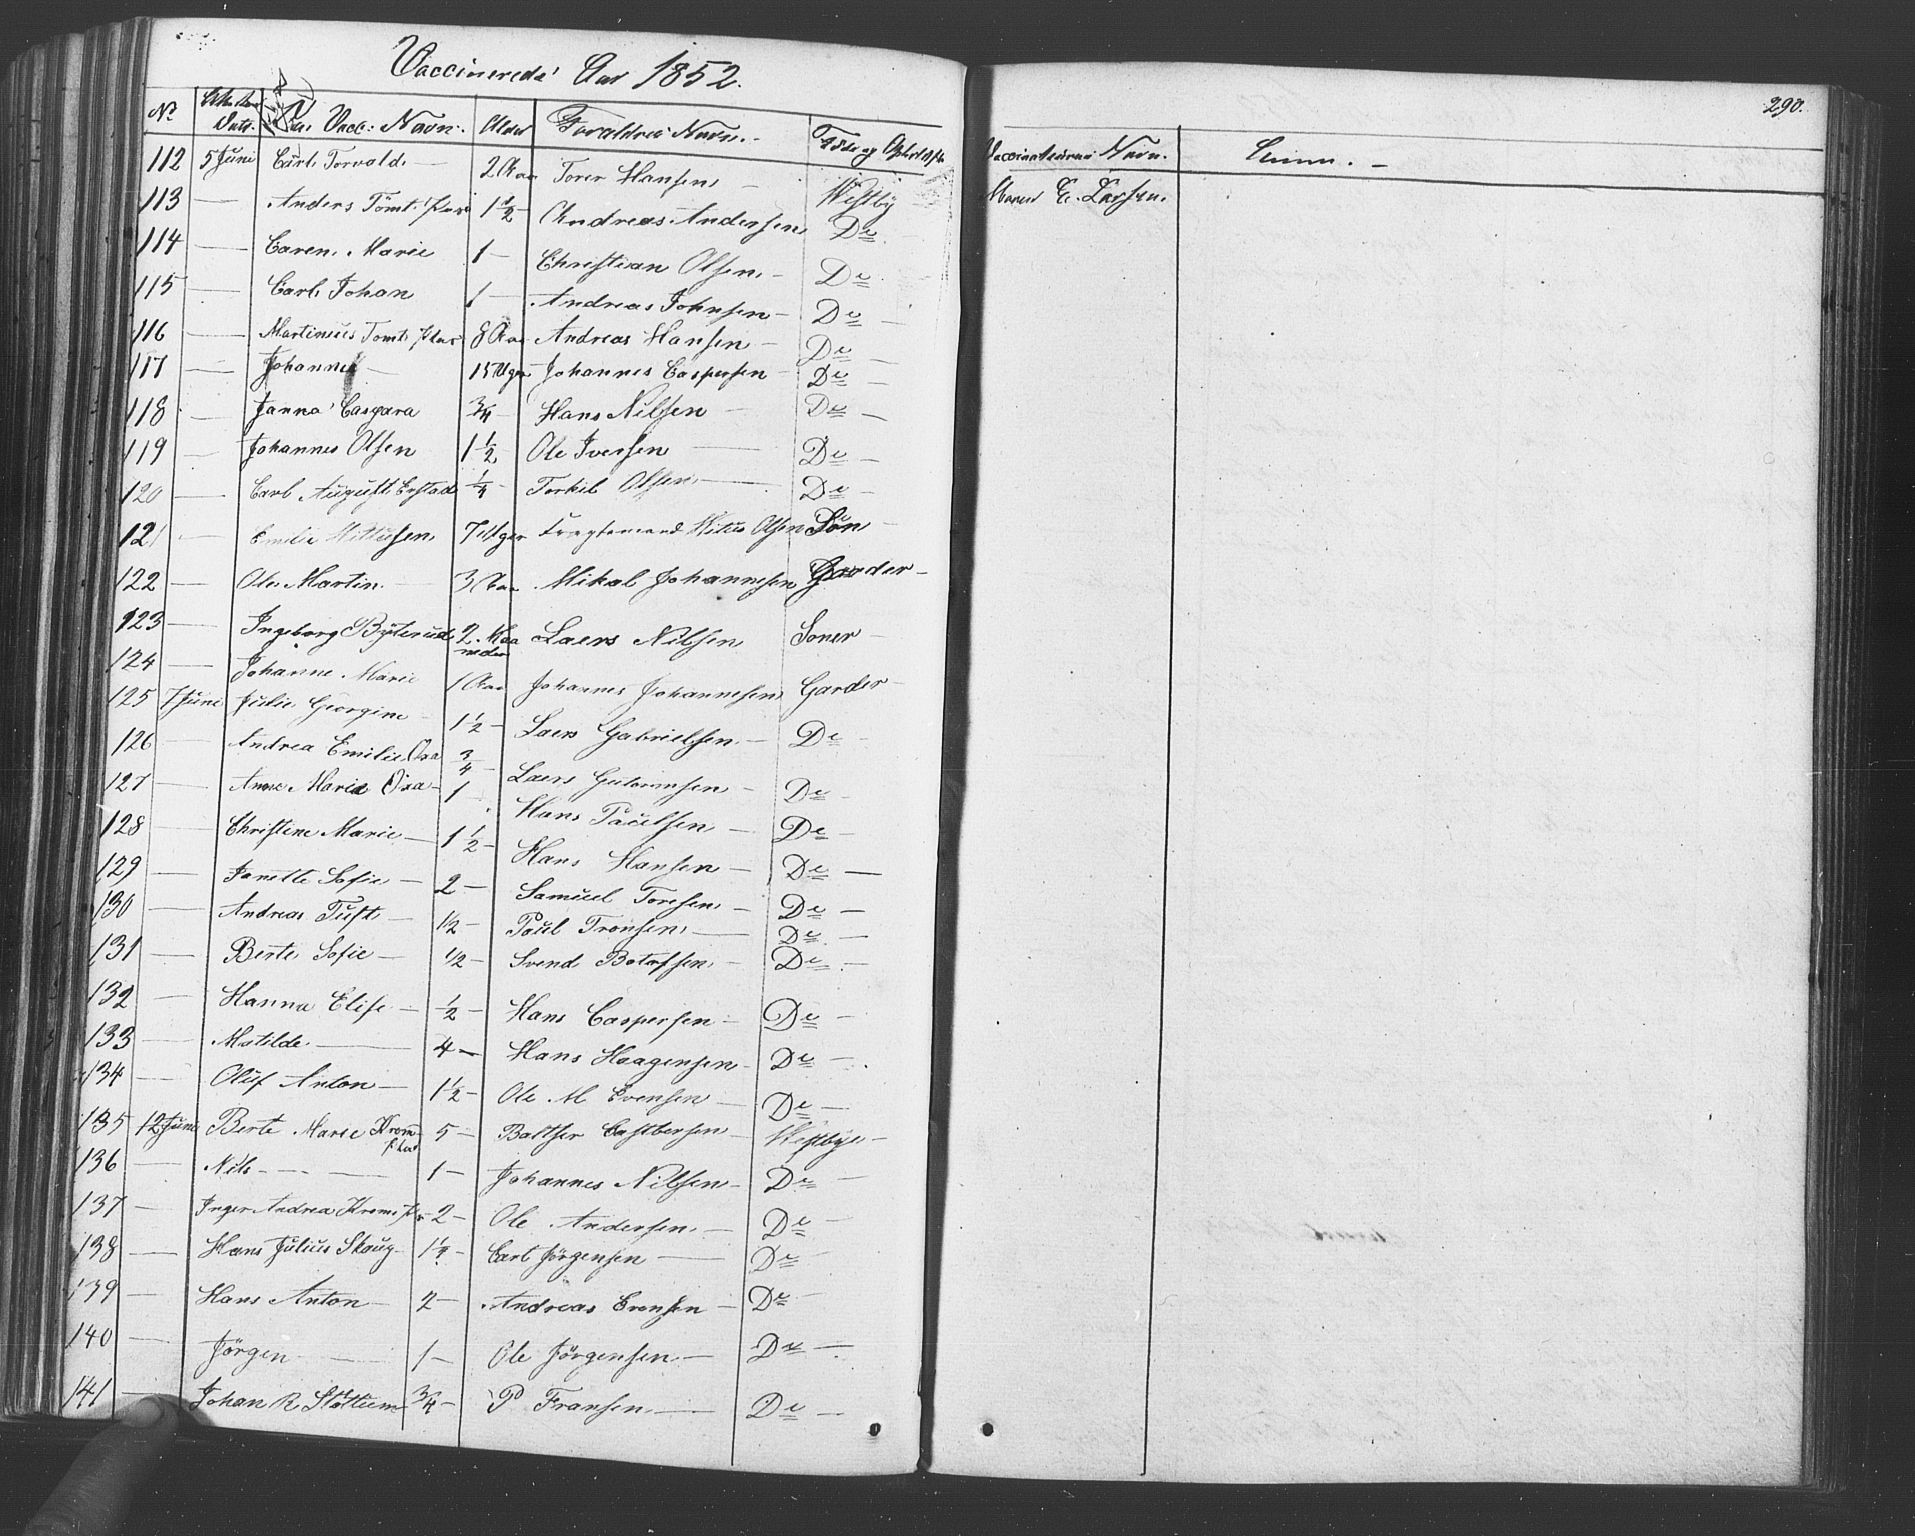 Vaccinerede Aar 1852.
290.
No Attestens Dato. Vacc: Navn. Alder Foraldres Navn. Føde og Opholdsst. Vaccinateurens Navn.
112 5 Juni Carl Torvald — 2 Aar Torer Hansen — Westby Maren E. Larsen.
113 — Anders Tömt. plas 1 1/2 — Andreas Andersen Do
114 — Caren Marie 1 — Christian Olsen — Do
115 — Carl Johan 1 — Andreas Johnsen — Do —
116 — Martinius Tomt. plas 8 Aar Andreas Hansen — Do —
117 — Johannes — 15 Uger Johannes Caspersen — Do —
118 — Janna Casgara 3/4 — Hans Nilsen — Do —
119 — Johannes Olsen 1 1/2 Ole Iversen — Do —
120 — Carl August 1/4 — Torkil Olsen — Do —
121 — Emilie Wittusen 7 Uger Fragtemand Witus Olsen Sön —
122 — Ole Martin — 3 Aar Mikal Johannesen Garder —
123 — Ingeborg Byterud 2 Maa neder Laers Nilsen Soner —
124 — Johanne Marie 1 Aar Johannes Johannesen Garder —
125 7 Juni Julie Georgine — 1 1/2 — Laers Gabrielsen — Do —
126 — Andrea Emilie Oxa 3/4 — Laers Gutormsen — Do —
127 — Anne Maria Oxa — 1 — Hans Paulsen — Do —
128 — Christine Marie — 1 1/2 — Hans Hansen — Do —
129 — Janette Sofie — 2 — Samuel Toresen — Do —
130 — Andreas Tuft — 1/2 — Poul Tronsen — Do —
131 — Berte Sofie — 1/2 — Svend Botolfsen — Do —
132 — Hanna Elise — 1/2 — Hans Caspersen — Do —
133 — Matilde — 4 — Hans Haagensen — Do —
134 — Oluf Anton — 1 1/2 — Ole M Evensen — Do —
135 12 Juni Berte Marie Krom plas 5 — Baltser Castbersen — Westbye —
136 — Nils — 1 — Johannes Nilsen — Do —
137 — Inger Andrea Krom. plas 2 — Ole Andersen — Do —
138 — Hans Julius Skaug — 1 1/4 — Carl Jörgensen — Do —
139 — Hans Anton — 2 — Andreas Evensen — Do —
140 — Jörgen — 1 — Ole Jörgensen — Do —
141 — Johan R Støttum 3/4 — P Fransen — Do —